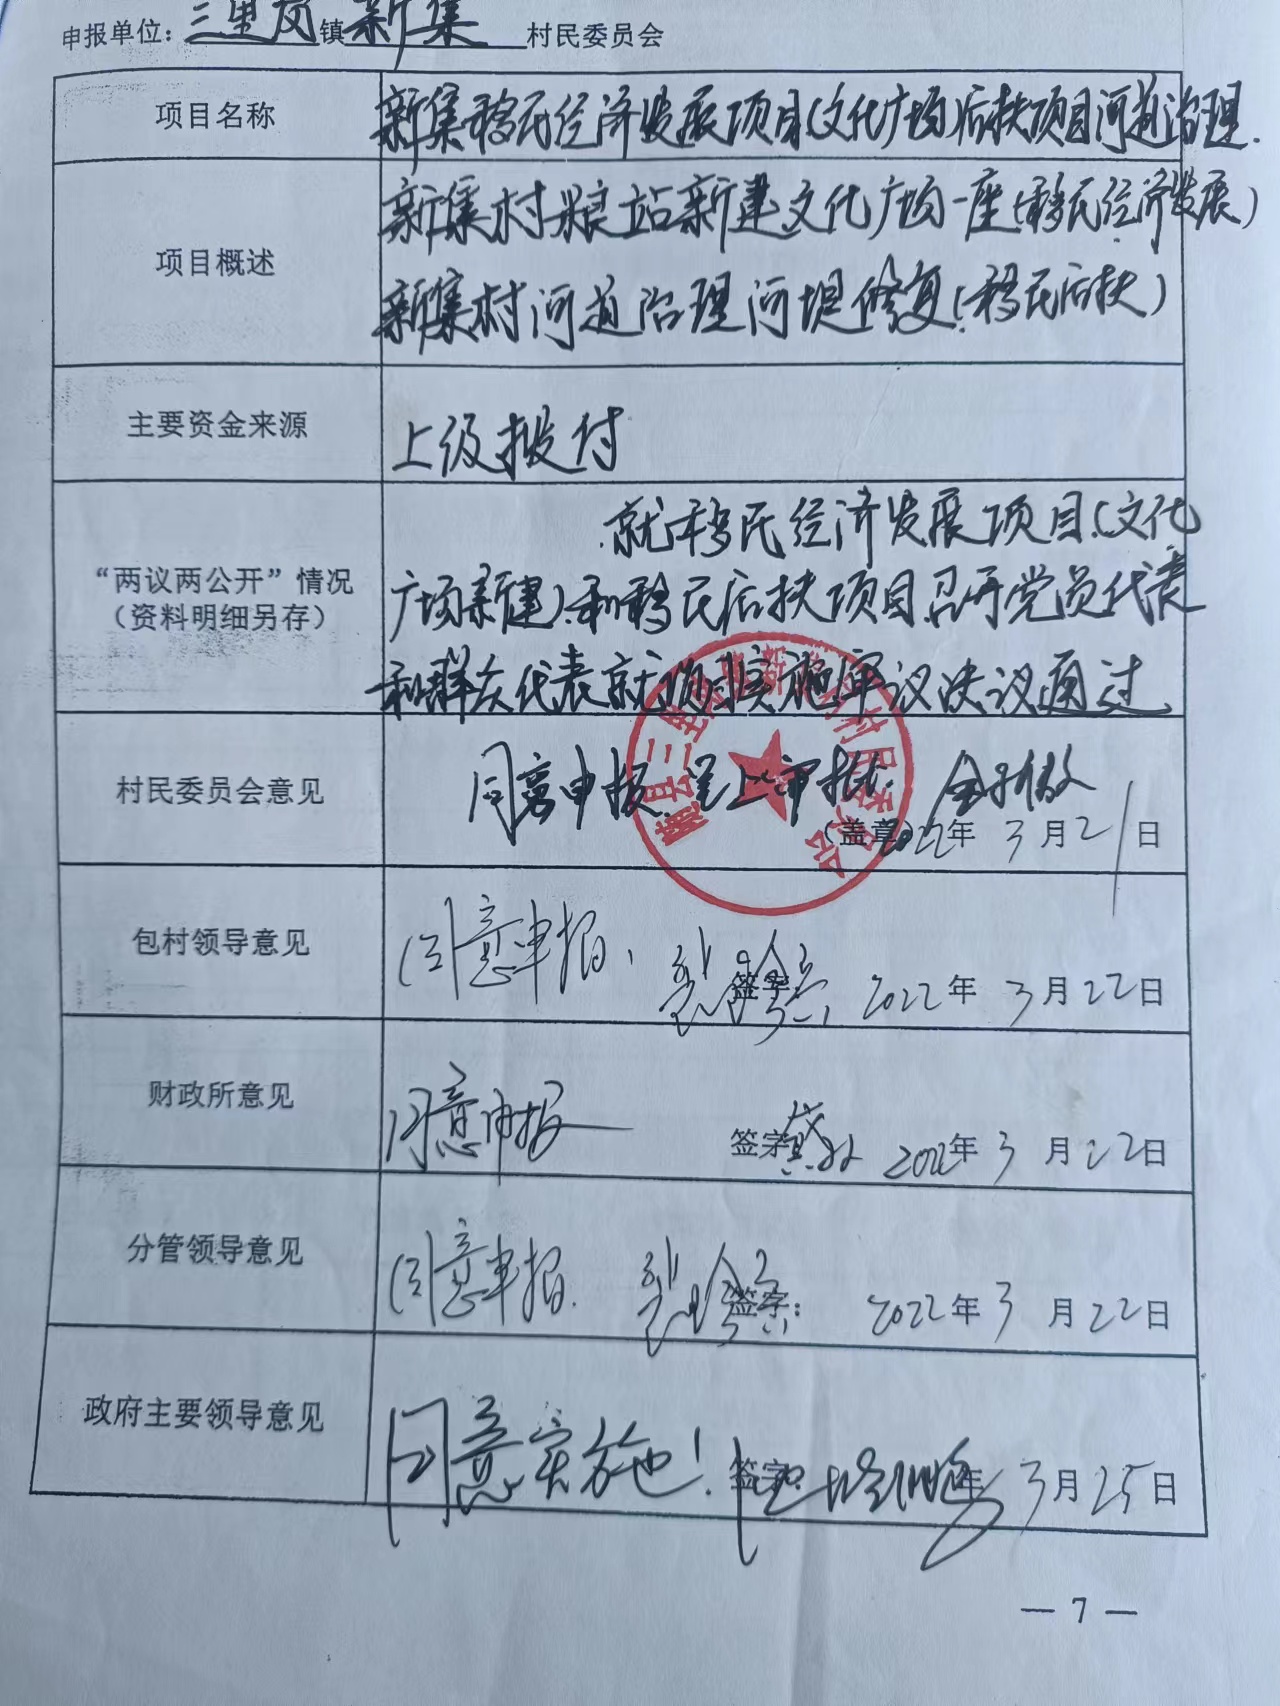 申报单位：三里岗镇新集村民委员会
项目名称 新集移民经济发展项目(文化广场)后扶项目河道治理.
项目概述
新集村粮站新建文化广场一座(移民经济发展)
新集村河道治理河堤修复(移民后扶)
主要资金来源 上级拨付
“两议两公开”情况
（资料明细另存）
就移民经济发展项目(文化
广场新建)和移民后扶项目召开党员代表
和群众代表就项目实施审议决议通过
村民委员会意见 同意申报 呈上审批.
（盖章）2022年3月21日
包村领导意见 同意申报.
签字 2022年3月22日
财政所意见 同意申报
签字 2022年3月22日
分管领导意见 同意申报.
签字： 2022年3月22日
政府主要领导意见 同意实施！
签字 年3月25日
— 7 —